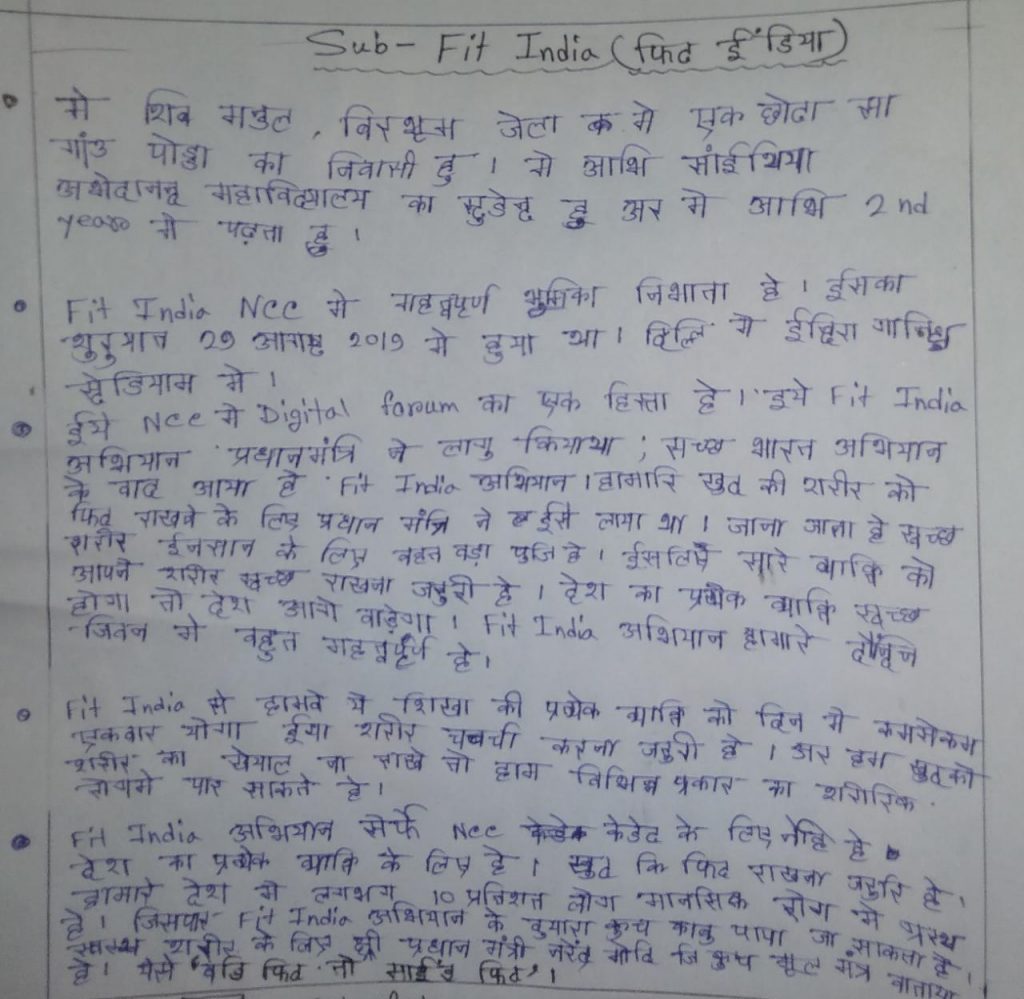 Sub - Fit India (फिट ईंडिया)
मे शिब मण्डल, विरभूम जेला क मे एक छोटा सा
गांउ पोड्डा का निवासी हु । मे आभि सांईथिया
अभेदानन्द महाविद्यालय का स्टुडेन्ट हु अर मे आभि 2nd
year मे पढ़ता हु ।
Fit India NCC मे महत्वपूर्ण भूमिका निभाता हे । ईसका
शुरुयात 29 आगष्ट 2019 मे हुया था । दिल्लि मे ईन्दिरा गान्धि
स्टेडियाम मे ।
ईये NCC मे Digital forum का एक हिस्सा हे । इये Fit India
अभियान प्रधानमंत्रि ने लागु कियाथा ; सच्छ भारत अभियान
के वाद आया हे Fit India अभियान । हामारि खुद की शरीर को
फिट राखने के लिए प्रधान मंत्रि ने ईसे लाया था । जाना जाता हे स्वच्छ
शरीर ईनसान के लिए वहुत वड़ा पुजि हे । ईसलिए सारे व्याक्ति को
आपने शरीर स्वच्छ राखना जरुरी हे । देश का प्रत्येक व्याक्ति स्वच्छ
होगा तो देश आगे वाढ़ेगा । Fit India अभियान हामारे
जिवन मे वहुत महत्वपूर्ण हे ।
Fit India से हामने ये शिखा की प्रत्येक व्याक्ति को दिन मे कमसेकम
एकवार योगा ईया शरीर चर्चा करना जरुरी हे । अर हम खुदको
शरीर का खेयाल ना राखे तो हाम विभिन्न प्रकार का शारीरिक
पार साकते हे ।
Fit India अभियान सेर्फ NCC केडेट के लिए नेहि हे
देश का प्रत्येक व्याक्ति के लिए हे । खुद कि फिट राखना जरुरि हे ।
हामारे देश मे लगभग 10 प्रतिशत लोग मानसिक रोग मे ग्रस्थ
हे । जिसपार Fit India अभियान के दुयारा कुच कावु पाया जा साकता हे ।
स्वस्थ शरीर के लिए श्री प्रधान मंत्री नरेंद्र मोदि जि कुच मूल मंत्र वाताया
हे । येसे 'वडि फिट तो माईन्ड फिट' ।